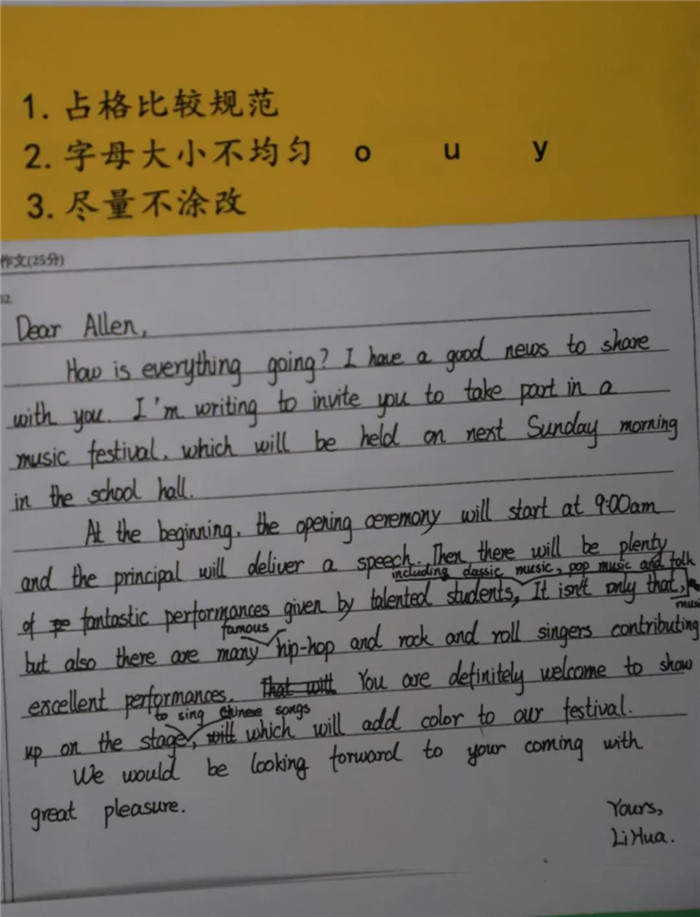 1. 占格比较规范
2. 字母大小不均匀 o u y
3. 尽量不涂改
作文(25分)
Dear Allen,
How is everything going? I have a good news to share
with you. I'm writing to invite you to take part in a
music festival, which will be held on next Sunday morning
in the school hall.
At the beginning, the opening ceremony will start at 9:00am
and the principal will deliver a speech. Then there will be plenty
including classic music, pop music and folk
of fantastic performances given by talented students, It isn't only that,
musi
famous
but also there are many hip-hop and rock and roll singers contributing
excellent performances. That will You are definitely welcome to show
to sing Chinese songs
up on the stage, will which will add color to our festival.
We would be looking forward to your coming with
great pleasure.
Yours,
Li Hua.